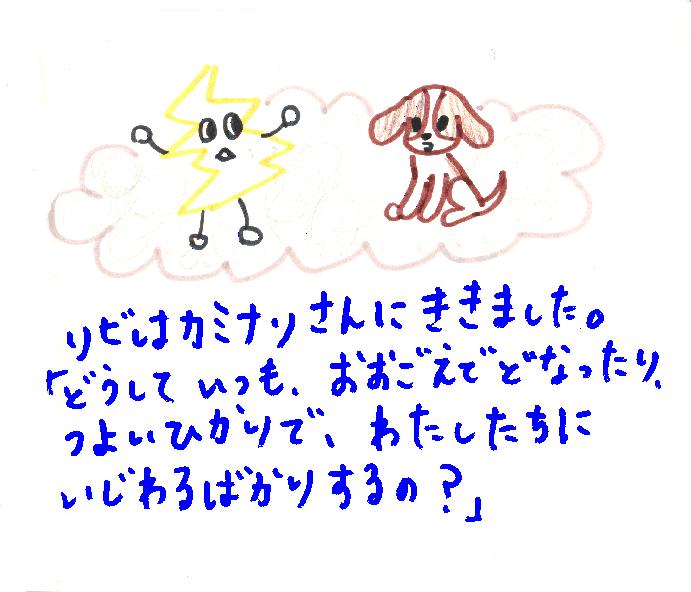 リビはカミナリさんにききました。
「どうして いつも、おおごえでどなったり、
つよいひかりで、わたしたちに
いじわるばかりするの?」